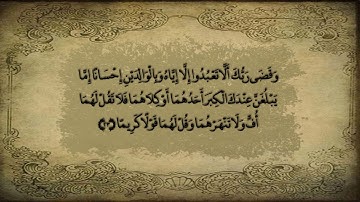 وَقَضَى رَبُّكَ أَلَّا تَعْبُدُوا إِلَّا إِيَّاهُ وَبِالْوَالِدَيْنِ إِحْسَانًا إِمَّا
يَبْلُغَنَّ عِنْدَكَ الْكِبَرَ أَحَدُهُمَا أَوْ كِلَاهُمَا فَلَا تَقُلْ لَهُمَا
أُفٍّ وَلَا تَنْهَرْهُمَا وَقُلْ لَهُمَا قَوْلًا كَرِيمًا